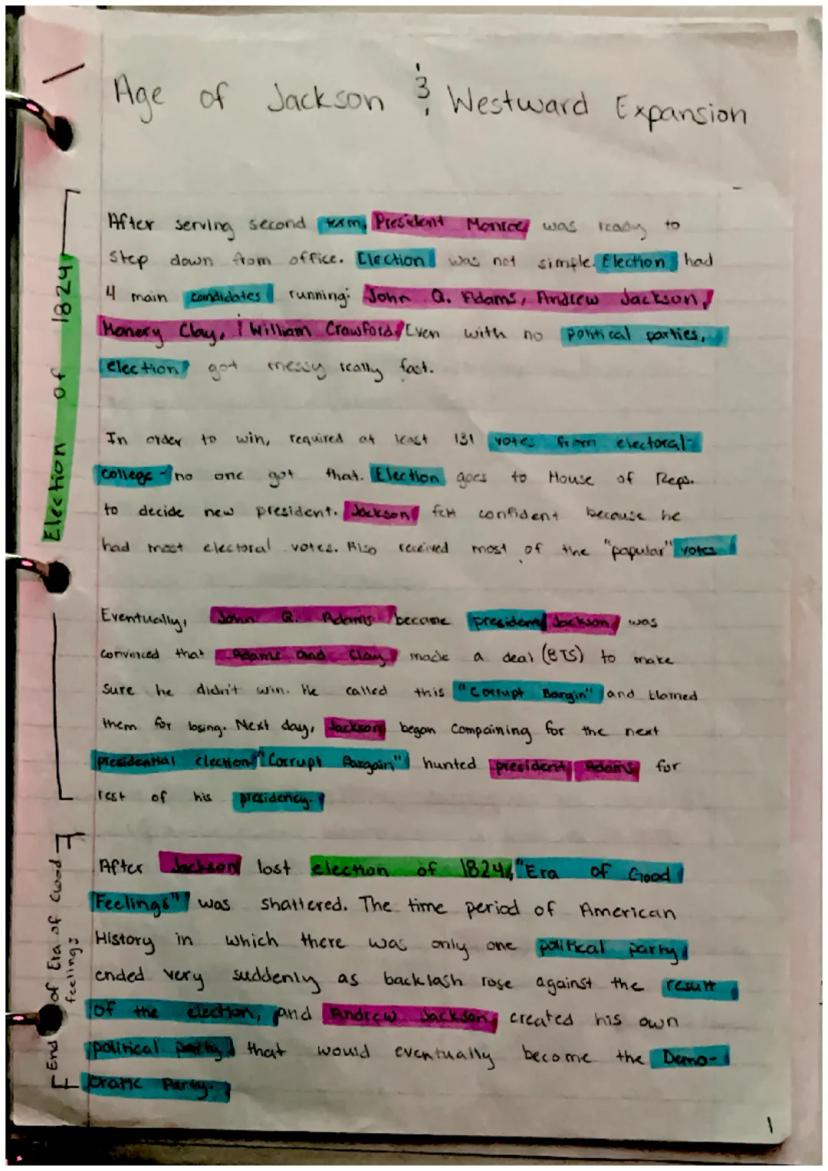 Age of Jackson & Westward Expansion
Election of 1824
After serving second term, President Monroe was ready to
step down from office. Election was not simple. Election had
4 main candidates running: John Q. Adams, Andrew Jackson,
Henery Clay, & William Crawford. Even with no political parties,
election got messy really fast.
In order to win, required at least 131 votes from electoral-
college - no one got that. Election goes to House of Reps.
to decide new president. Jackson felt confident because he
had most electoral votes. Also received most of the "popular" votes
Eventually, John Q. Adams became president. Jackson was
convinced that Adams and Clay made a deal (BTS) to make
sure he didn't win. He called this "Corrupt Bargin" and blamed
them for losing. Next day, Jackson began compaining for the next
presidential election. "Corrupt Bargain" hunted president Adams for
rest of his presidency.
End of Era of Good
feelings
After Jackson lost election of 1824, "Era of Good
Feelings" was shattered. The time period of American
History in which there was only one political party
ended very suddenly as backlash rose against the result
of the election, and Andrew Jackson created his own
political party that would eventually become the Demo-
cratic Party.
1